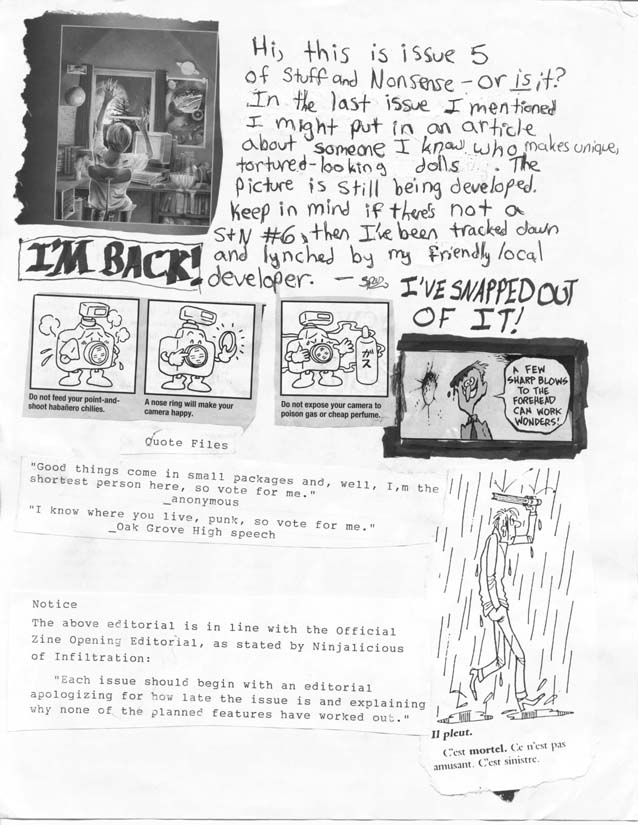 Hi, this is issue 5
of Stuff and Nonsense – or is it?
In the last issue I mentioned
I might put in an article
about someone I know who makes unique,
tortured-looking dolls . . The
picture is still being developed.
Keep in mind if there's not a
S+N #6, then I've been tracked down
and lynched by my friendly local
developer. —
I'M BACK!
I'VE SNAPPED OUT
OF IT!
Do not feed your point-and-
shoot habañero chilies.
A nose ring will make your
camera happy.
ガス
Do not expose your camera to
poison gas or cheap perfume.
A FEW
SHARP BLOWS
TO THE
FOREHEAD
CAN WORK
WONDERS!
Quote Files
"Good things come in small packages and, well, I,m the
shortest person here, so vote for me."
_anonymous
"I know where you live, punk, so vote for me."
_Oak Grove High speech
Notice
The above editorial is in line with the Official
Zine Opening Editorial, as stated by Ninjalicious
of Infiltration:
"Each issue should begin with an editorial
apologizing for how late the issue is and explaining
why none of the planned features have worked out."
Il pleut.
C'est mortel. Ce n'est pas
amusant. C'est sinistre.